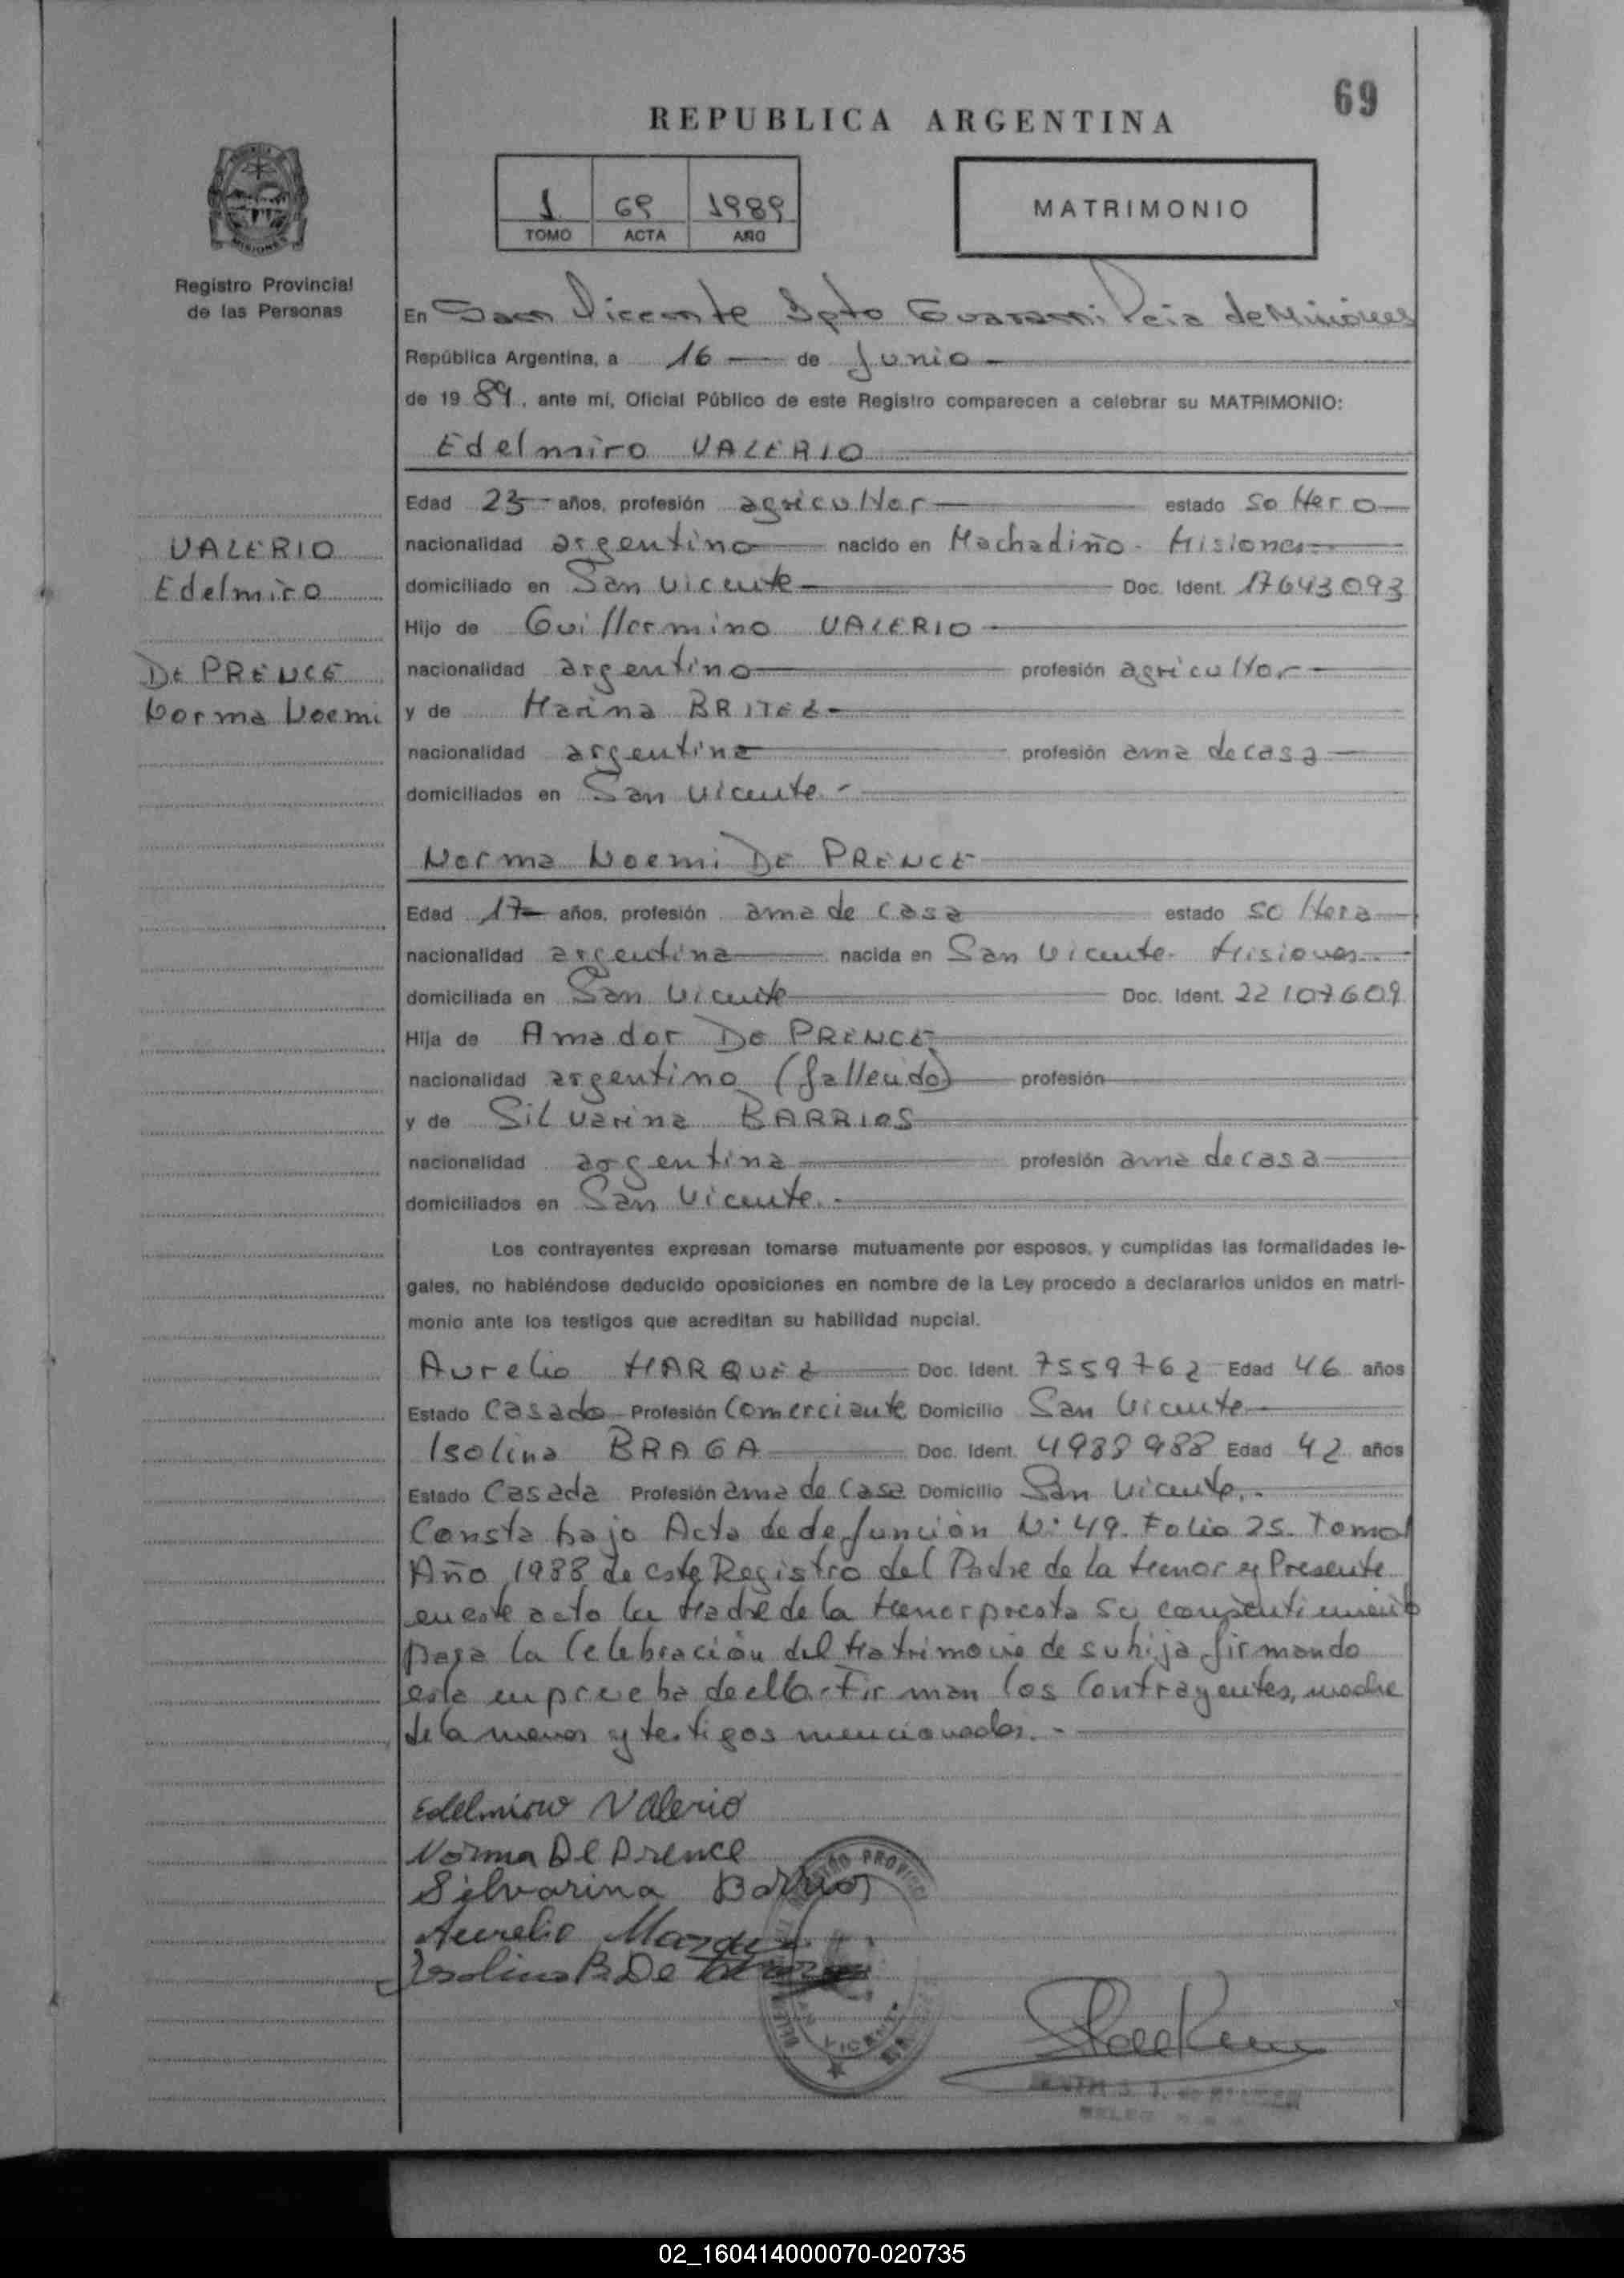 69
REPUBLICA ARGENTINA
1 69 1989
TOMO ACTA AÑO
MATRIMONIO
MISIONES
Registro Provincial
de las Personas
En San Vicente Dpto Guarani Pcia de Misiones
República Argentina, a 16 — de Junio —
de 1989, ante mí, Oficial Público de este Registro comparecen a celebrar su MATRIMONIO:
Edelmiro VALERIO
Edad 23 - años, profesión agricultor — estado soltero —
VALERIO
nacionalidad argentino — nacido en Machadiño - Misiones —
Edelmiro
domiciliado en San Vicente — Doc. Ident. 17643093
Hijo de Guillermino VALERIO —
DE PRENCE
nacionalidad argentino — profesión agricultor —
Norma Noemi
y de Marina BRITEZ —
nacionalidad argentina — profesión ama de casa —
domiciliados en San Vicente. -
Norma Noemi DE PRENCE
Edad 17 — años, profesión ama de casa — estado soltera —
nacionalidad argentina — nacida en San Vicente - Misiones. —
domiciliada en San Vicente — Doc. Ident. 22107609
Hija de Amador DE PRENCE —
nacionalidad argentino (fallecido) — profesión —
y de Silvarina BARRIOS —
nacionalidad argentina — profesión ama de casa —
domiciliados en San Vicente. -
Los contrayentes expresan tomarse mutuamente por esposos, y cumplidas las formalidades le-
gales, no habiéndose deducido oposiciones en nombre de la Ley procedo a declararlos unidos en matri-
monio ante los testigos que acreditan su habilidad nupcial.
Aurelio MARQUEZ — Doc. Ident. 7559762 - Edad 46 años
Estado Casado - Profesión Comerciante Domicilio San Vicente —
Isolina BRAGA — Doc. Ident. 4989988 Edad 42 años
Estado Casada Profesión ama de casa Domicilio San Vicente. -
Consta bajo Acta de defunción N: 49. Folio 25. Tomo 1
Año 1988 de este Registro del Padre de la Menor y Presente
en este acto la Madre de la Menor presta su consentimiento
para la Celebración del Matrimonio de su hija firmando
esta en prueba de ello. Firman los Contrayentes, madre
de la menor y testigos mencionados. -
Edelmiro Valerio
Norma De Prence
Silvarina Barrios
Aurelio Marquez
Isolina B. De
02_160414000070-020735